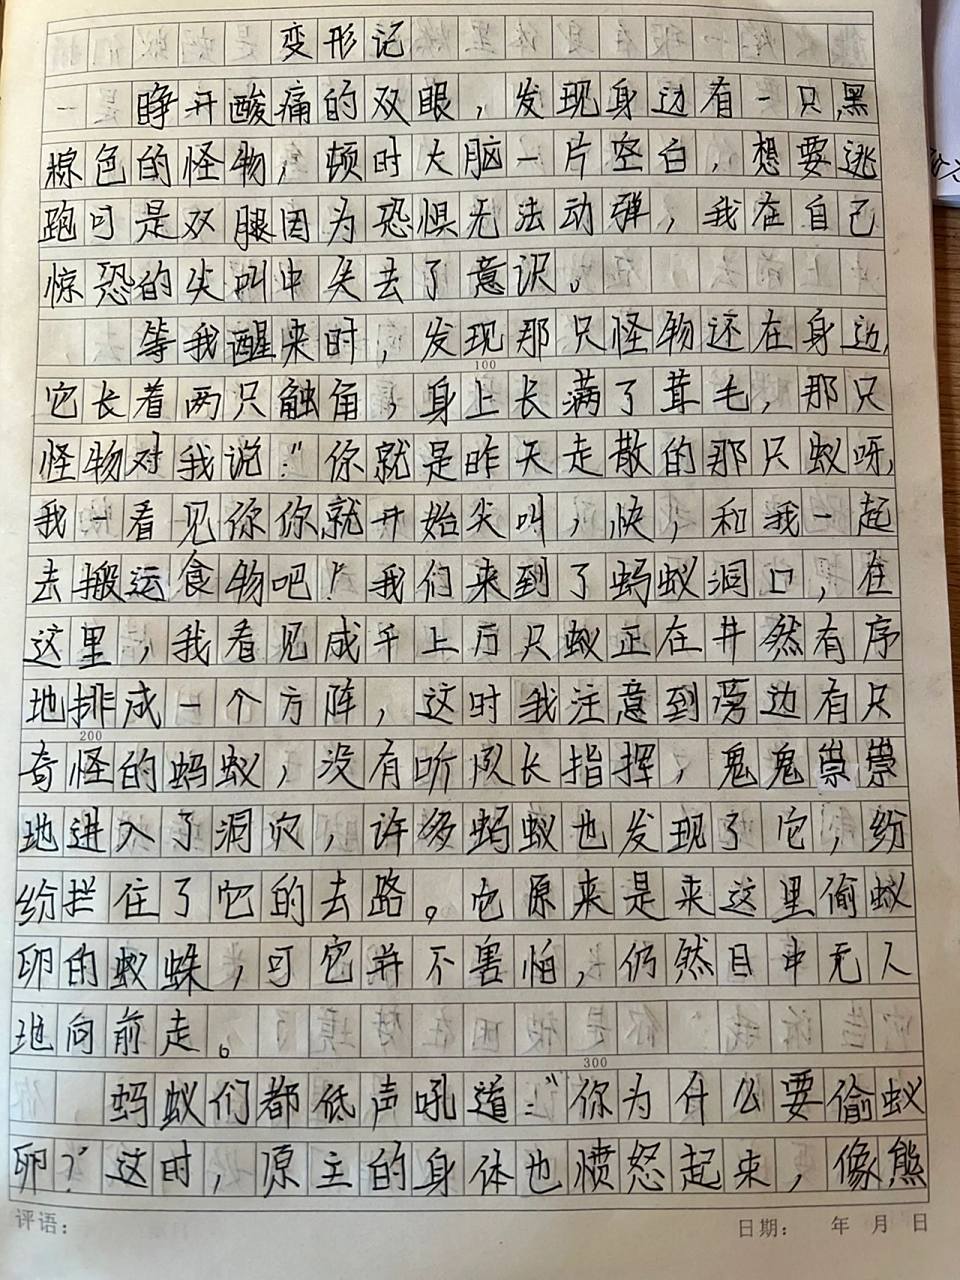 变形记
睁开酸痛的双眼，发现身边有一只黑
棕色的怪物，顿时大脑一片空白，想要逃
跑可是双腿因为恐惧无法动弹，我在自己
惊恐的尖叫中失去了意识。
等我醒来时，发现那只怪物还在身边，
它长着两只触角，身上长满了茸毛，那只
怪物对我说："你就是昨天走散的那只蚁呀，
我一看见你你就开始尖叫，快，和我一起
去搬运食物吧！我们来到了蚂蚁洞口，在
这里，我看见成千上万只蚁正在井然有序
地排成一个方阵，这时我注意到旁边有只
奇怪的蚂蚁，没有听队长指挥，鬼鬼祟祟
地进入了洞穴，许多蚂蚁也发现了它，纷
纷拦住了它的去路。它原来是来这里偷蚁
卵的蚁蛛，可它并不害怕，仍然目中无人
地向前走。
蚂蚁们都低声吼道："你为什么要偷蚁
卵？"这时，原主的身体也愤怒起来，像熊
100
200
300
评语：
日期： 年 月 日